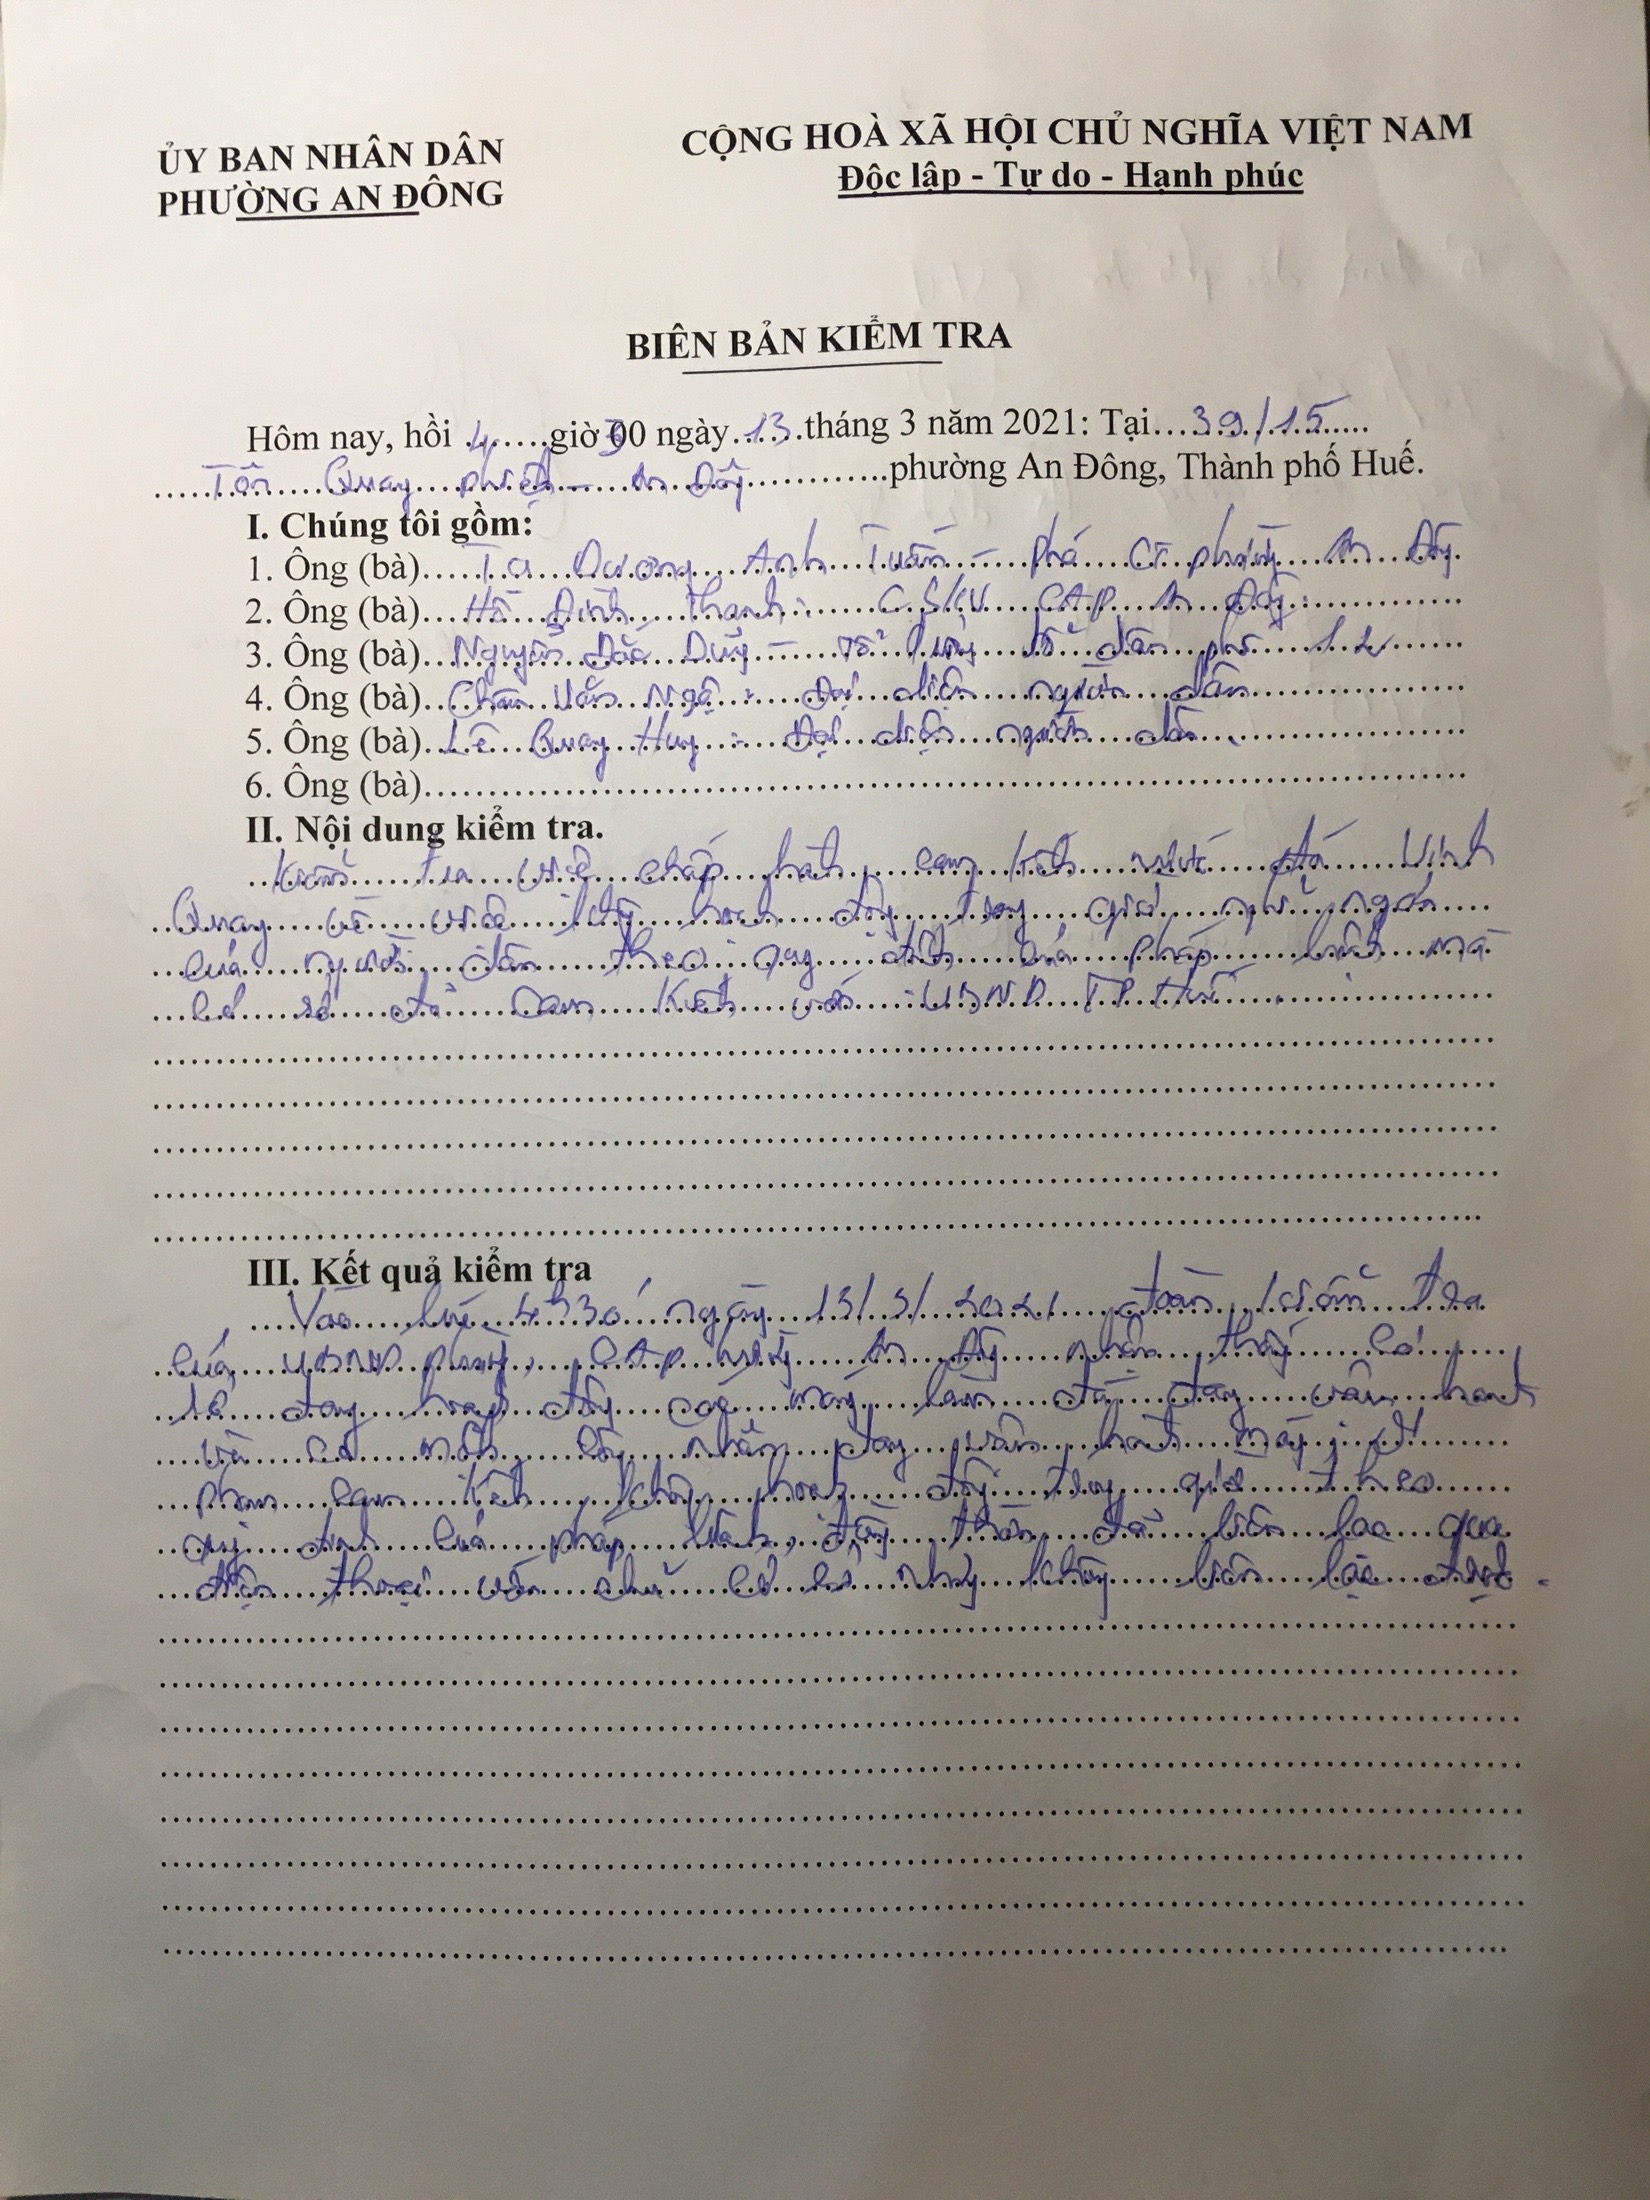 ỦY BAN NHÂN DÂN
PHƯỜNG AN ĐÔNG
CỘNG HOÀ XÃ HỘI CHỦ NGHĨA VIỆT NAM
Độc lập - Tự do - Hạnh phúc
BIÊN BẢN KIỂM TRA
Hôm nay, hồi 4 giờ 30 ngày 13 tháng 3 năm 2021: Tại 39/15
Tôn Quang Phiệt - An Đông phường An Đông, Thành phố Huế.
I. Chúng tôi gồm:
1. Ông (bà) Dương Anh Tuấn - Phó CT phường An Đông
2. Ông (bà) Hồ Đình Thanh: CSKV CAP An Đông
3. Ông (bà) Nguyễn Đắc Dũng - Tổ trưởng tổ dân phố 12
4. Ông (bà) Văn Ngộ: Đại diện người dân
5. Ông (bà) Lê Quang Huy: Đại diện người dân
6. Ông (bà)
II. Nội dung kiểm tra.
Kiểm tra việc chấp hành cam kết nước đá Vinh
Quang về việc không hoạt động trong giờ nghỉ ngơi
của người dân theo quy định của pháp luật mà
cơ sở đã cam kết với UBND TP Huế.
III. Kết quả kiểm tra
Vào lúc 4h30' ngày 13/3/2021 đoàn kiểm tra
của UBND phường, CAP phường An Đông nhận thấy cơ
sở đang hoạt động các máy làm đá đang vận hành
và có một công nhân đang vận hành máy, vi
phạm cam kết không hoạt động trong giờ theo
quy định của pháp luật, đồng thời đã liên lạc qua
điện thoại với chủ cơ sở nhưng không liên lạc được.